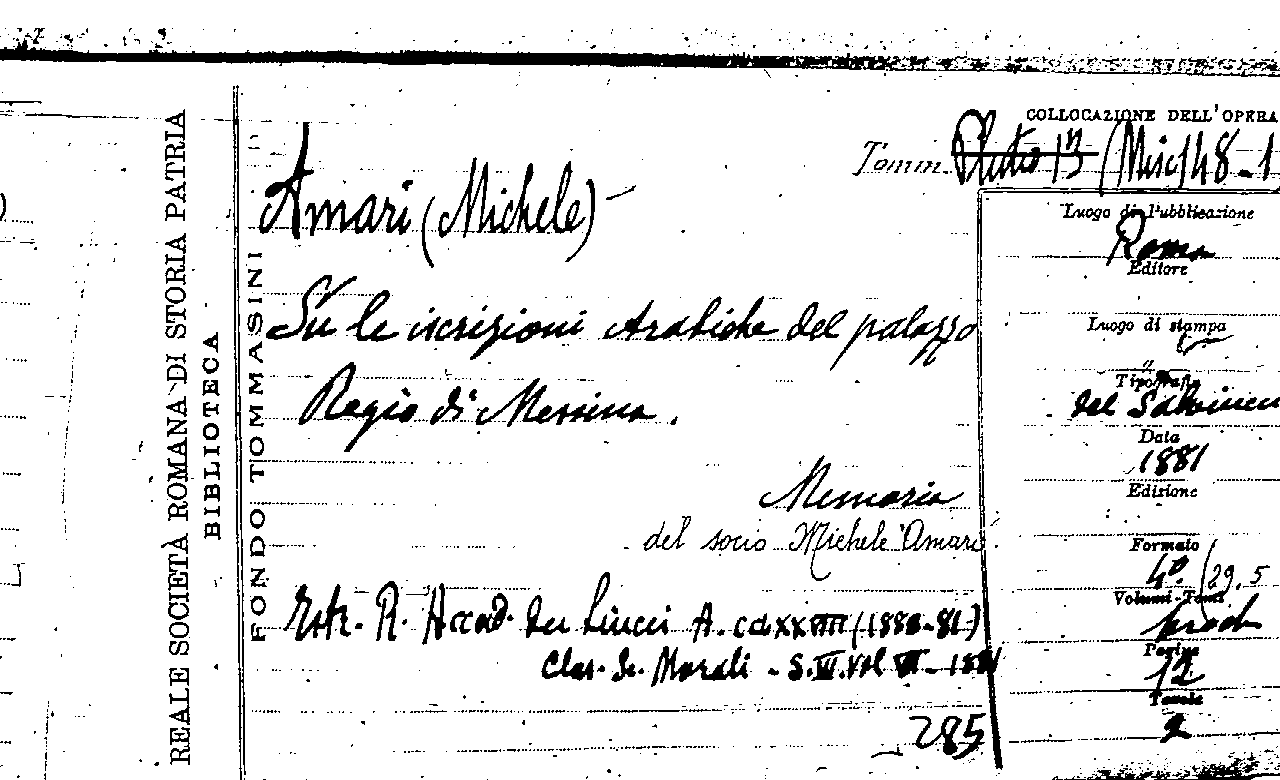 REALE SOCIETÀ ROMANA DI STORIA PATRIA
BIBLIOTECA
FONDO TOMMASINI
COLLOCAZIONE DELL'OPERA
Tomm. Pluteo 13 (Misc) 48-1
Amari (Michele)
Su le iscrizioni Arabiche del palazzo
Regio di Messina.
Memoria
del socio Michele Amari
Estr. R. Accad. dei Lincei A. (1880-81)
Clas. Sc. Morali - S. III. Vol VII - 1881
285
Luogo di pubblicazione
Roma
Editore
Luogo di stampa
Tipografia
del Salviucci
Data
1881
Edizione
Formato
4º. (29,5
Volumi-Tomi
Pagine
12
Tavole
2